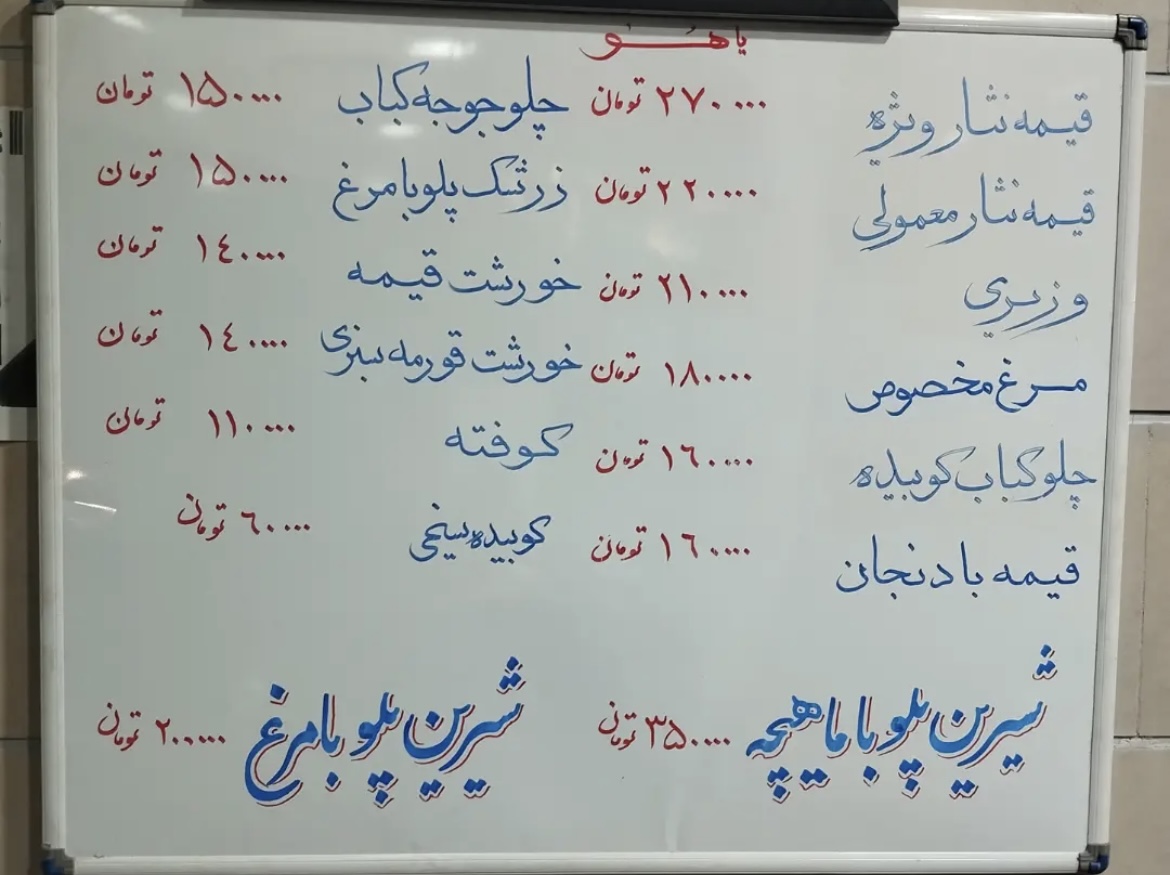 یا هو
قیمه نثار ویژه ۲۷۰۰۰۰ تومان چلو جوجه کباب ۱۵۰۰۰۰ تومان
قیمه نثار معمولی ۲۲۰۰۰۰ تومان زرشک پلو با مرغ ۱۵۰۰۰۰ تومان
وزیری ۲۱۰۰۰۰ تومان خورشت قیمه ۱٤۰۰۰۰ تومان
مرغ مخصوص ۱۸۰۰۰۰ تومان خورشت قورمه سبزی ۱٤۰۰۰۰ تومان
چلو کباب کوبیده ۱٦۰۰۰۰ تومان کوفته ۱۱۰۰۰۰ تومان
قیمه بادنجان ۱٦۰۰۰۰ تومان کوبیده سیخی ٦۰۰۰۰ تومان
شیرین پلو با ماهیچه ۳۵۰۰۰۰ تومان شیرین پلو با مرغ ۲۰۰۰۰۰ تومان